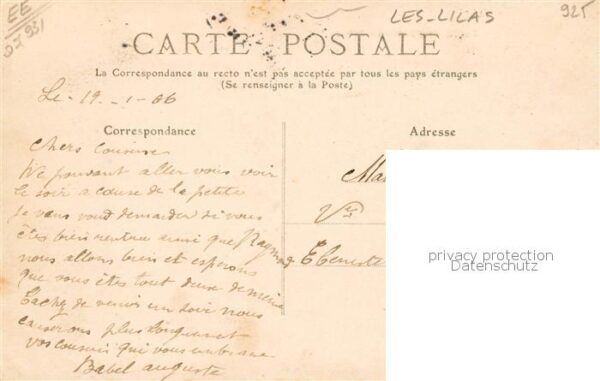 EE
DJ 931
LES-LILAS
925
CARTE POSTALE
La Correspondance au recto n'est pas acceptée par tous les pays étrangers
(Se renseigner à la Poste)
Le 19_1_06
Correspondance
Adresse
chers cousins
Ne pouvant aller vous voir
le soir a cause de la petite
je vous demander si vous
êtes bien rentrer ainsi que Raymond
nous allons bien et esperons
que vous êtes tout deux de même
Tachez de venir un soir nous
causerons plus longuement
vos cousins qui vous embrasse
Babel auguste
Ma
Vve
Ebeniste
privacy protection
Datenschutz